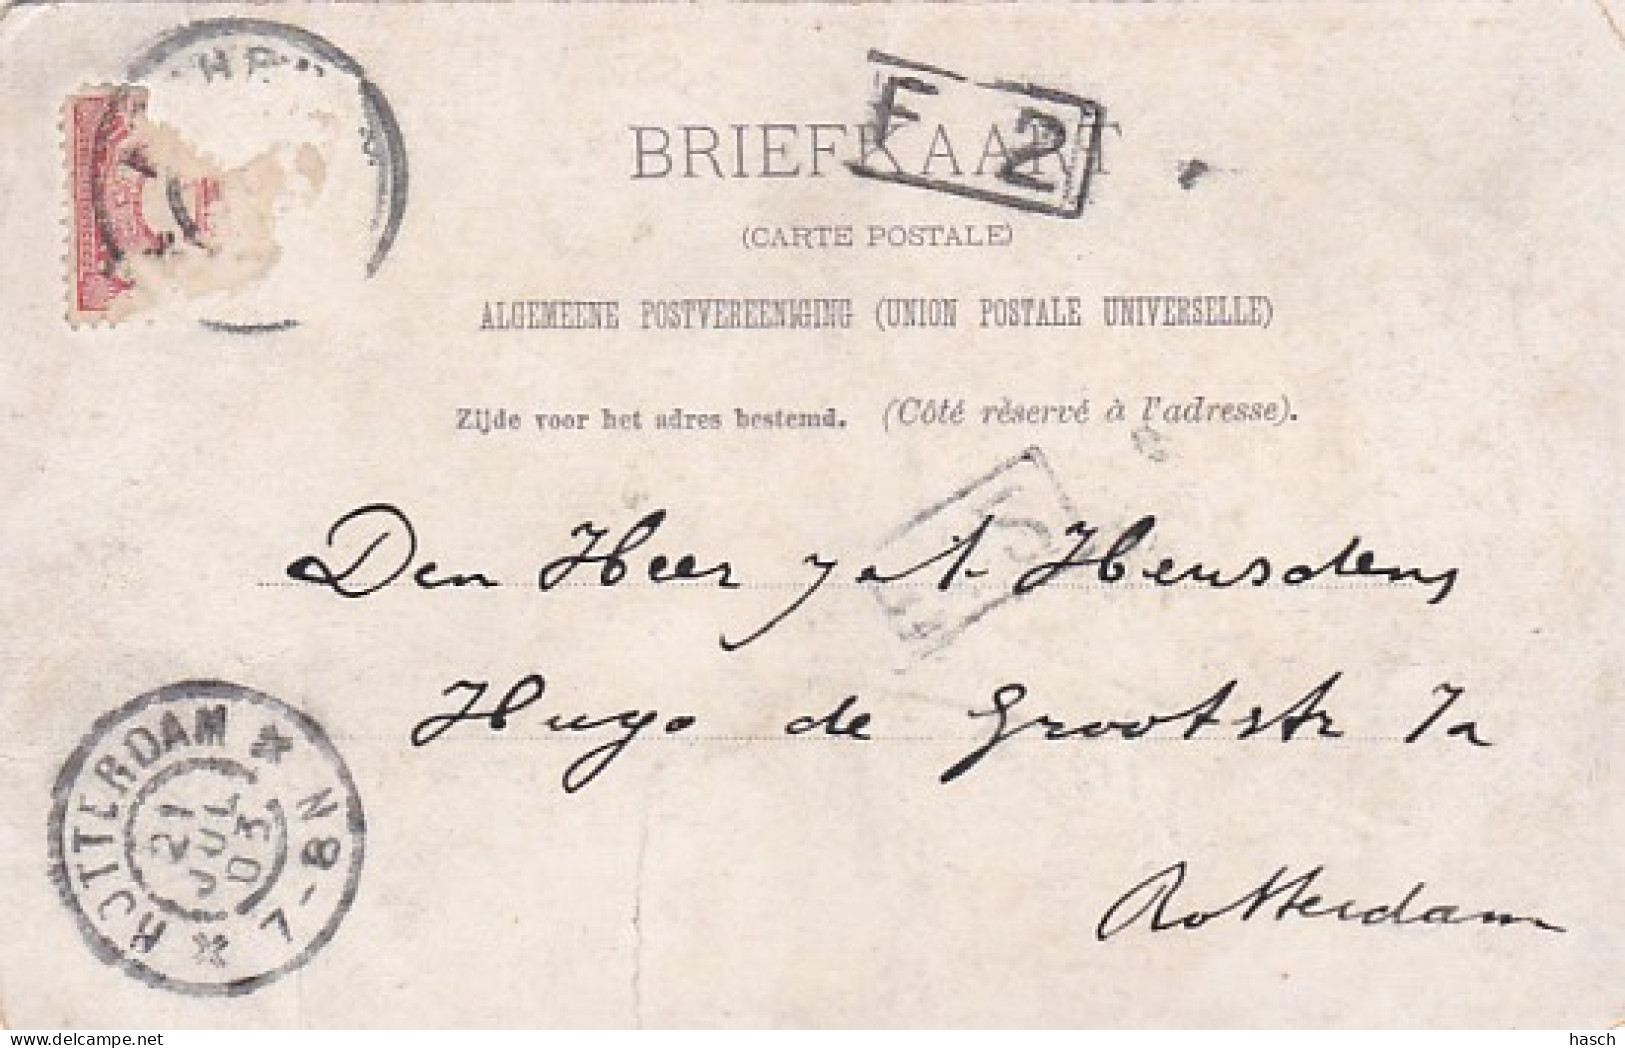 BRIEFKAART
F 2
(CARTE POSTALE)
ALGEMEENE POSTVEREENIGING (UNION POSTALE UNIVERSELLE)
Zijde voor het adres bestemd. (Côté rèservé à l'adresse).
Den Heer
Hugo de Grootstr 7a
Rotterdam
ROTTERDAM * 7-8 N *
21
JUL
03
hasch